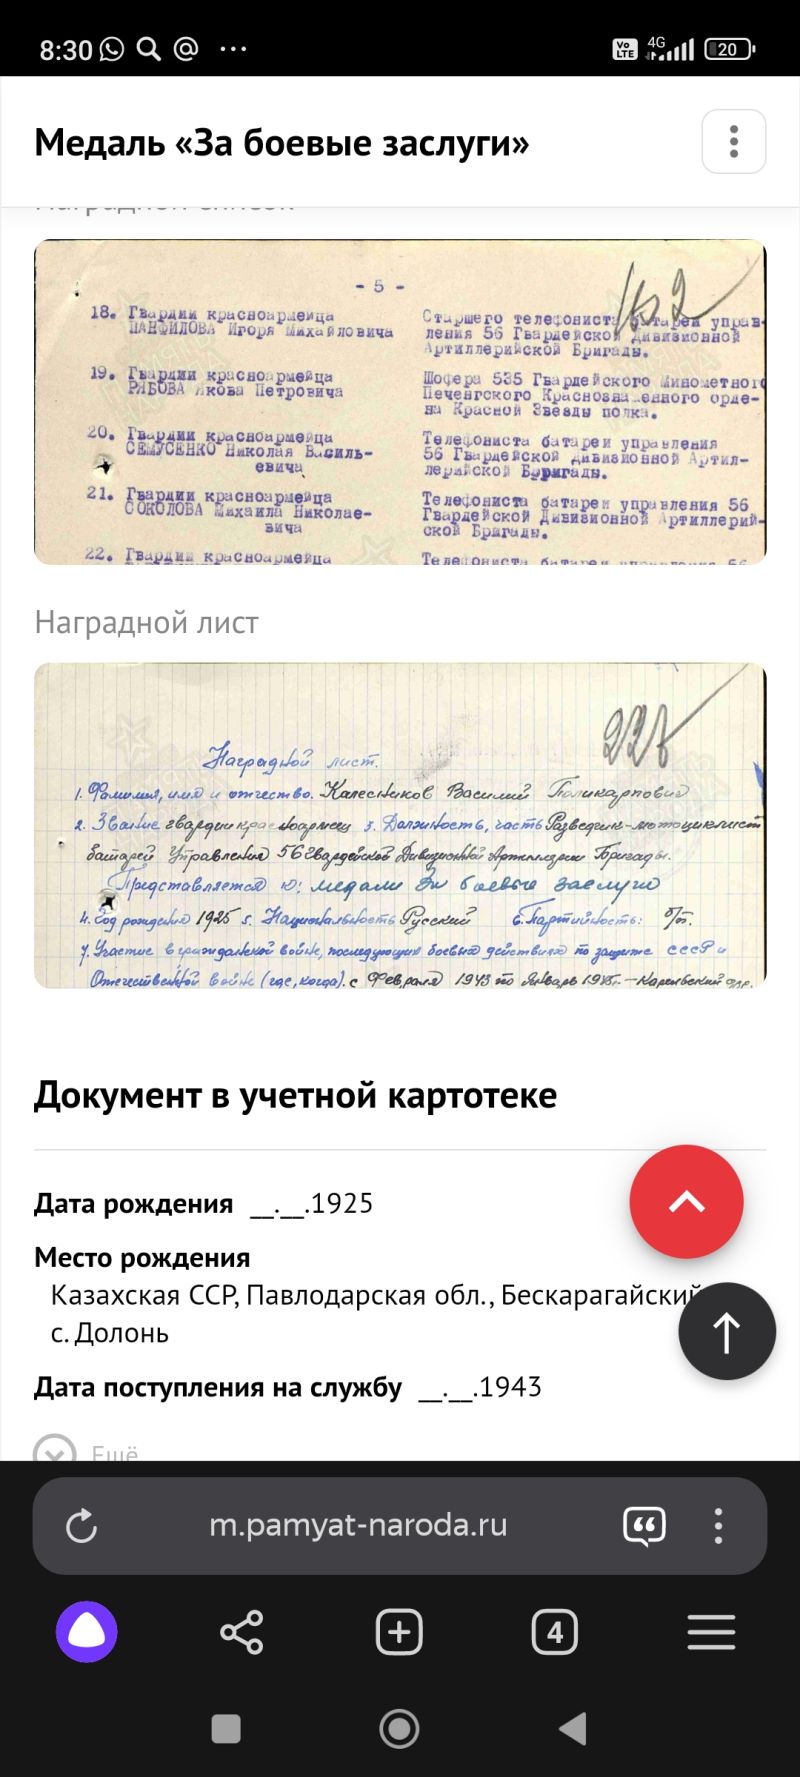 8:30
VoLTE 4G 20
Медаль «За боевые заслуги»
Наградной список
- 5 -
162
18. Гвардии красноармейца
ПАНФИЛОВА Игоря Михайловича
Старшего телефониста батареи управ-
ления 56 Гвардейской Дивизионной
Артиллерийской Бригады.
19. Гвардии красноармейца
РЯБОВА Якова Петровича
Шофера 535 Гвардейского Минометного
Печенгского Краснознаменного орде-
на Красной Звезды полка.
20. Гвардии красноармейца
СЕМУСЕНКО Николая Василь-
евича
Телефониста батареи управления
56 Гвардейской Дивизионной Артил-
лерийской Бригады.
21. Гвардии красноармейца
СОКОЛОВА Михаила Николае-
вича
Телефониста батареи управления 56
Гвардейской Дивизионной Артиллерий-
ской Бригады.
22. Гвардии красноармейца
Телефониста батареи управления 56
Наградной лист
Наградной лист.
1. Фамилия, имя и отчество. Калесников Василий Поликарпович
2. Звание гвардии красноармеец 3. Должность, часть Разведчик-мотоциклист
батареи Управления 56 Гвардейской Дивизионной Артиллерии Бригады.
Представляется к: медали За боевые заслуги
4. Год рождения 1925 5. Национальность Русский 6. Партийность: б/п.
7. Участие в гражданской войне, последующих боевых действиях по защите СССР и
Отечественной войне (где, когда). с Февраля 1943 по Январь 1945г. - Карельский
Документ в учетной картотеке
Дата рождения __.__.1925
Место рождения
Казахская ССР, Павлодарская обл., Бескарагайский
с. Долонь
Дата поступления на службу __.__.1943
Ещё
m.pamyat-naroda.ru
4